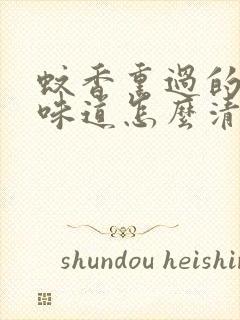 蚊香熏過的
味道怎麼清
shundou heishin